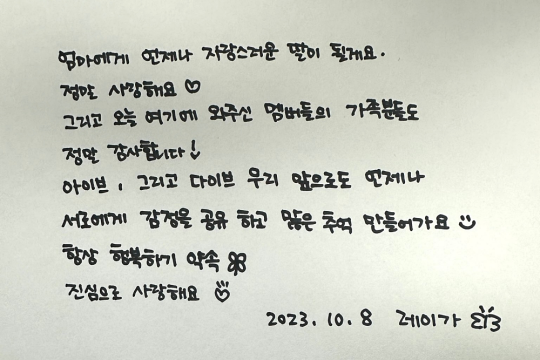 엄마에게 언제나 자랑스러운 딸이 될게요.
정말 사랑해요 ♡
그리고 오늘 여기에 와주신 멤버들의 가족분들도
정말 감사합니다!
아이브, 그리고 다이브 우리 앞으로도 언제나
서로에게 감정을 공유 하고 많은 추억 만들어가요
항상 행복하기 약속
진심으로 사랑해요
2023.10.8 레이가